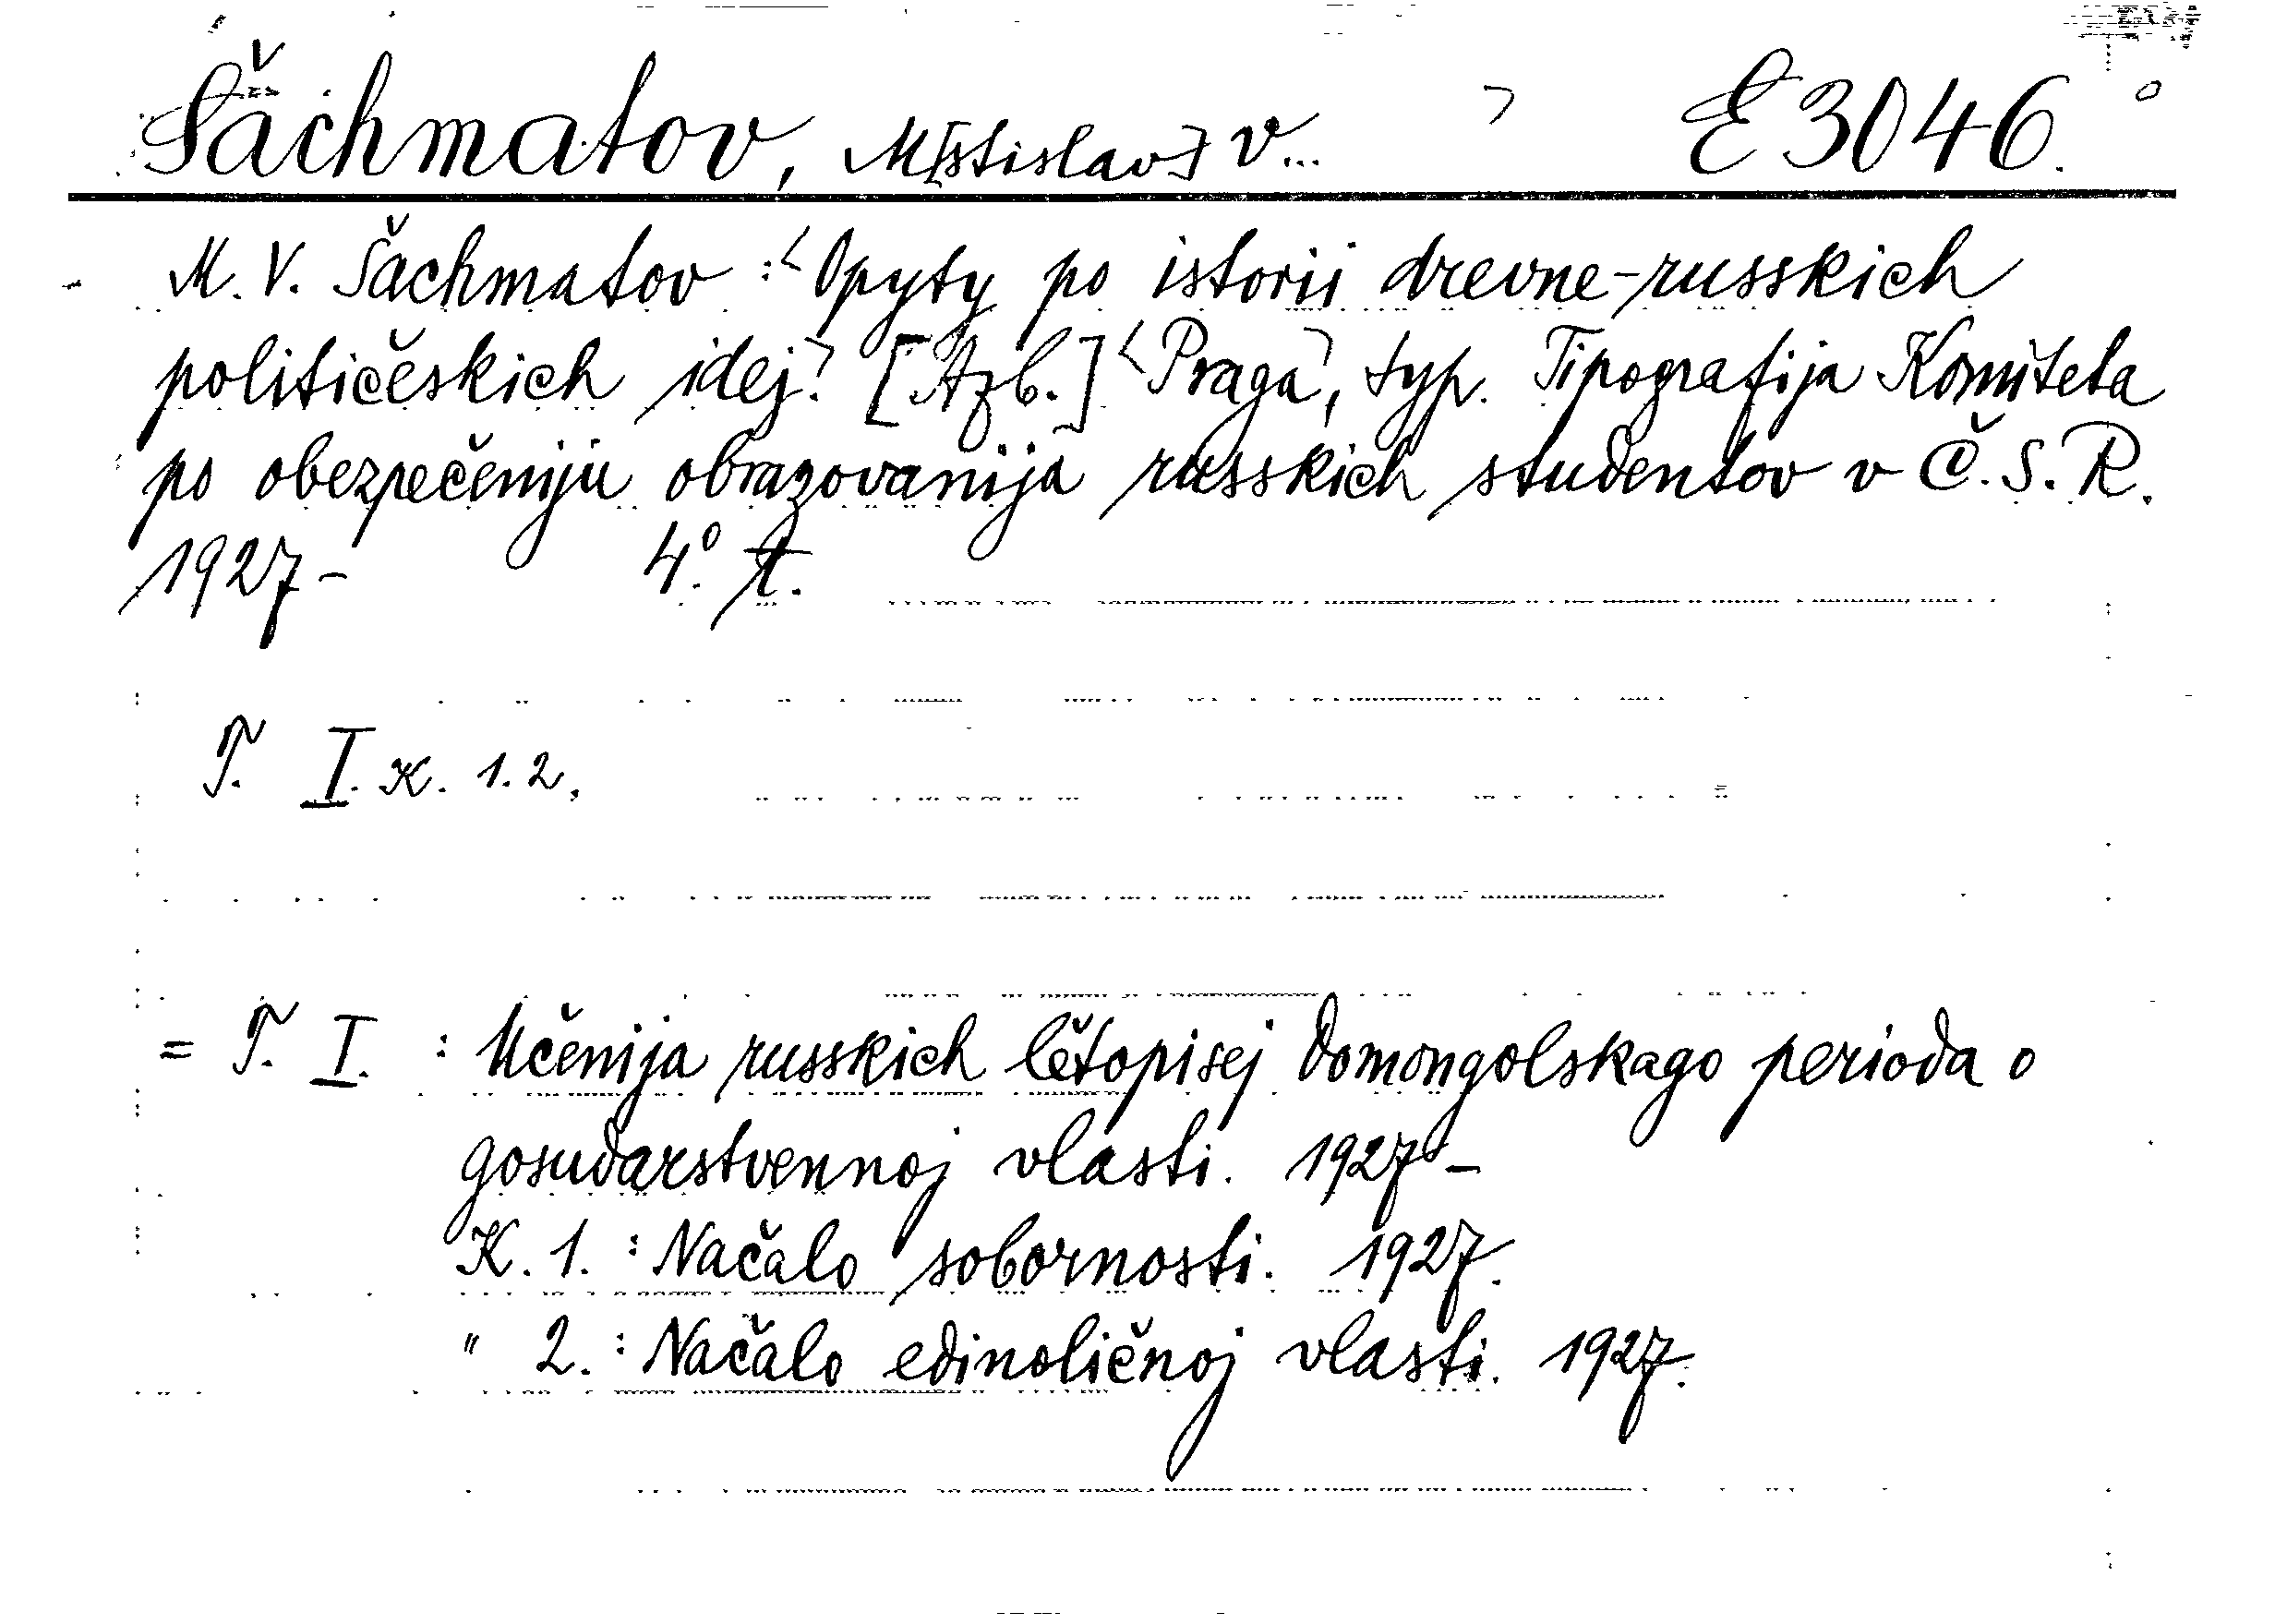 Šachmatov, M[stislav] V... E 3046.
M. V. Šachmatov : <Opyty po istorii drevne-russkich
političeskich idej.> [Azb.] <Praga>, typ. Tipografija Komiteta
po obezpečeniju obrazovanija russkich studentov v Č. S. R.
1927- 4º. t.
T. I. K. 1. 2,
= T. I. : Učenija russkich lětopisej domongolskago perioda o
gosudarstvennoj vlasti. 1927-
K. 1. : Načalo sobornosti. 1927.
" 2. : Načalo edinoličnoj vlasti. 1927.